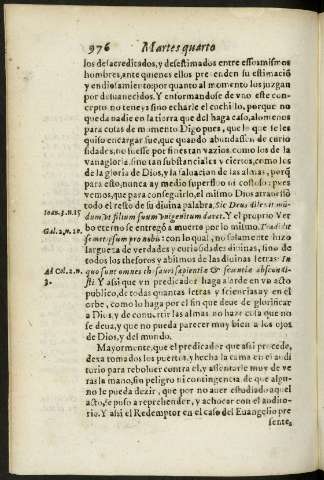 976 Martes quarto
los desacreditados, y desestimados entre essos mismos
hombres, ante quienes ellos pretenden su estimació
y endiosamiento: por quanto al momento los juzgan
por desuanecidos. Y entornandose de vno este con-
cepto no teneys sino echarle el cochillo, porque no
queda nadie en la tierra que del haga caso, alomenos
para cosas de momento Digo pues, que lo que se les
quiso encargar fue, que quando abundassen de curio
sidades, no fuesse por fines tan vazios como los de la
vanagloria, sino tan substanciales y ciertos, como los
de la gloria de Dios, y la saluacion de las almas, porq̃
para esto, nunca ay medio superfluo ni costoso: pues
vemos, que para conseguirlo, el mismo Dios atrauiessò
todo el resto de su diuina palabra. Sic Deus dilexit mū-
Ioan. 3. n. 15 dum vt filium suum vnigenitum daret. Y el proprio Ver
Gal. 2. n. 20. bo eterno se entregó a muerto por lo mismo. Tradidit
semetipsum pro nobis: con lo qual, no solamente hizo
largueza de verdades y curiosidades diuinas, sino de
todos los thesoros y abitmos de las diuinas letras: In
Ad Col. 2. n. quo sunt omnes thesauri sapientiæ & scientiæ abscondi-
3. sti. Y assi que vn predicador haga alarde en vn acto
publico, de todas quantas letras y sciencias ay en el
orbe, como lo haga por el fin que deue de glorificar
a Dios, y de conuertir las almas no haze cosa que no
se deua, y que no pueda parecer muy bien a los ojos
de Dios, y del mundo.
Mayormente, que el predicador que assi procede,
dexa tomados los puertos, y hecha la cama en el audi
torio para reboluer contra el, y assentarle muy de ve
ras la mano, sin peligro ni contingencia de que algu-
no le pueda dezir, que por no auer estudiado aquel
acto, se puso a reprehender, y achocar con el audito-
rio. Y ahi el Redemptor en el caso del Euangelio pre
sente,